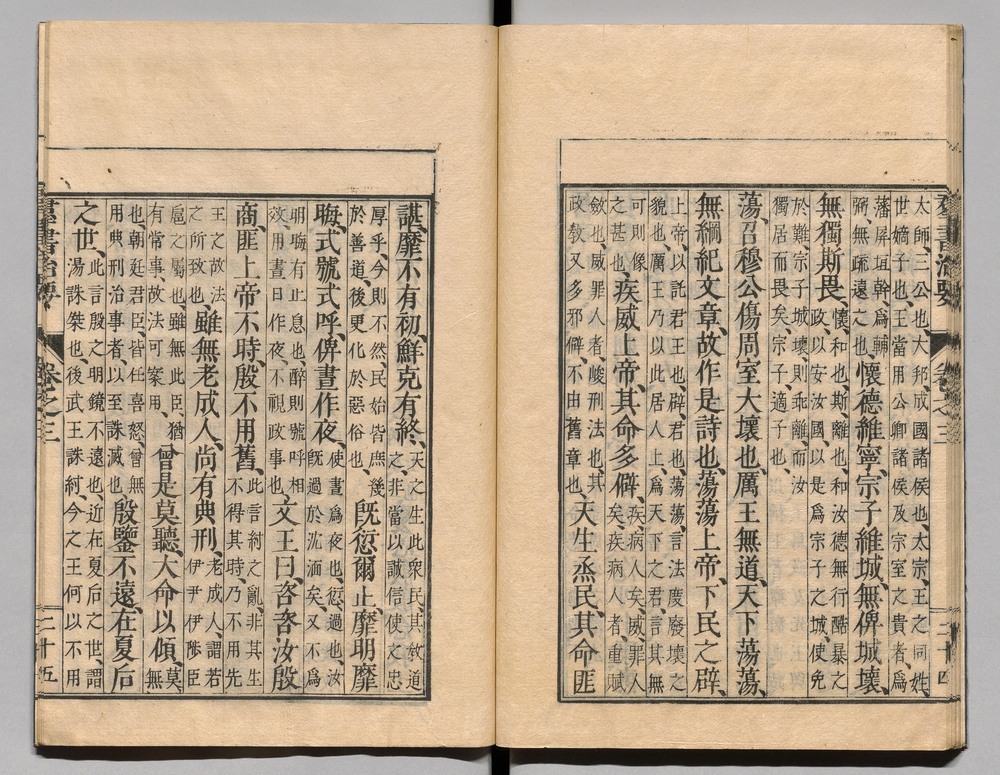 羣書治要　卷之三　二十四
太師、三公也、大邦、成國諸侯也、太宗、王之同姓、
世嫡子也、王當用公卿諸侯及宗室之貴者、爲
藩屏垣幹、爲輔
弼、無疏遠之也、
懷德維寧、宗子維城、無俾城壞、
無獨斯畏、
懷、和也、斯、離也、和汝德無行酷暴之
政、以安汝國、以是爲宗子之城、使免
於難、宗子城壞、則乖離、而汝
獨居而畏矣、宗子、適子也、
蕩、召穆公傷周室大壞也、厲王無道、天下蕩蕩、
無綱紀文章、故作是詩也、蕩蕩上帝、下民之辟、
上帝、以託君王也、辟、君也、蕩蕩、言法度廢壞之
貌也、厲王乃以此居人上、爲天下之君、言其無
可則像
之甚也、
疾威上帝、其命多僻、
疾、病人矣、威、罪人
矣、疾病人者、重賦
斂也、威罪人者、峻刑法也、其
政敎又多邪僻、不由舊章也、
天生烝民、其命匪
諶、靡不有初、鮮克有終、
天之生此衆民、其敎道
之、非當以誠信使之忠
厚乎、今則不然、民始皆庶幾
於善道、後更化於惡俗也、
旣愆爾止、靡明靡
晦、式號式呼、俾晝作夜、
使晝爲夜也、愆、過也、汝
旣過於沈湎矣、又不爲
明晦有止息也、醉則號呼相
效、用晝日作夜、不視政事也、
文王曰咨、咨汝殷
商、匪上帝不時、殷不用舊、
此言紂之亂、非其生
不得其時、乃不用先
王之故法
之所致也、
雖無老成人、尚有典刑、
老成人、謂若
伊尹伊陟臣
扈之屬也、雖無此臣、猶
有常事故法可案用、
曾是莫聽、大命以傾、
莫、
無
也、朝廷君臣皆任喜怒、曾無
用典刑治事者、以至誅滅也、
殷鑒不遠、在夏后
之世、
此言殷之明鏡不遠也、近在夏后之世、謂
湯誅桀也、後武王誅紂、今之王何以不用
羣書治要　卷之三　二十五